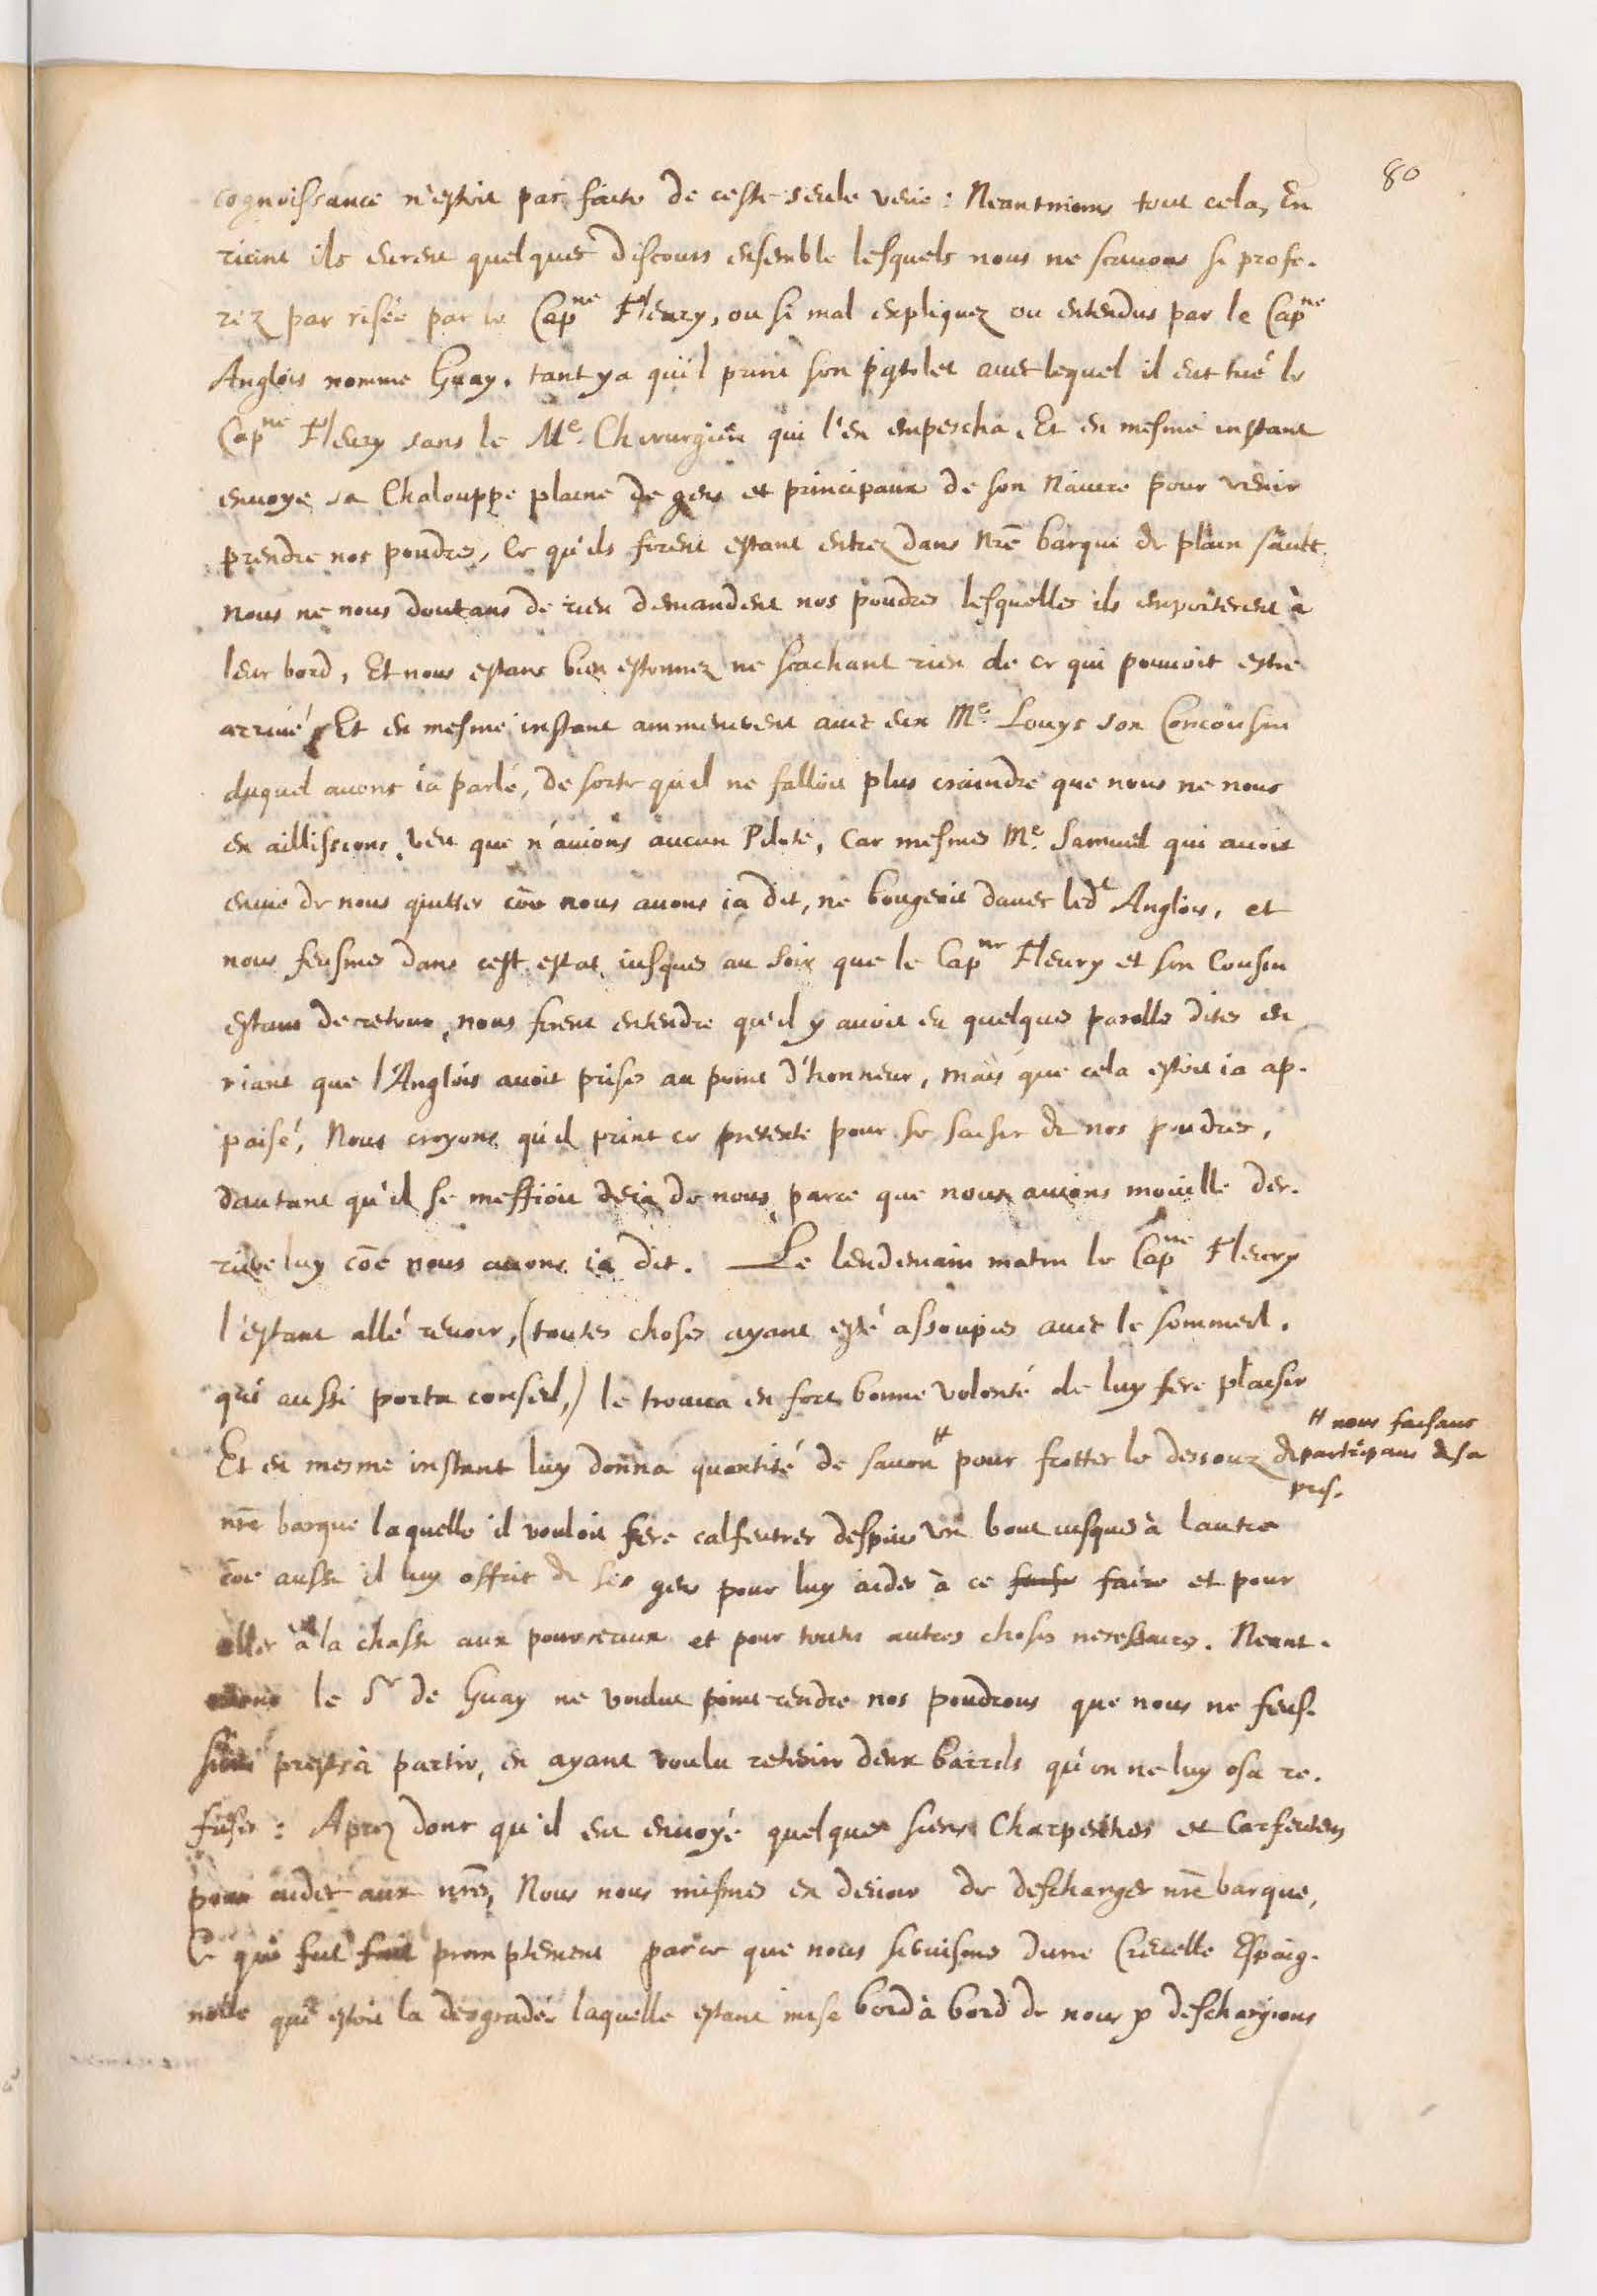 80
cognoissance n'estoit pas faite de ceste seule veüe : Neantmoins tout cela, En
riant ils eurent quelques discours ensemble lesquels nous ne scavons si profe-
rez par risée par le Cap^ne Fleury, ou si mal expliquez ou entendus par le Cap^ne
Anglois nomme Guay. tant y a qu'il print son pistolet avec lequel il eut tué le
Cap^ne Fleury sans le M^e. Chirurgien qui l'en empescha. Et en mesme instant
envoye sa Chalouppe plaine de gens et principaux de son Navire pour venir
prendre nos poudres, Ce qu'ils firent estant entrez dans n̄re barque de plain sault
nous ne nous doutans de rien demandent nos poudres lesquelles ils emporterent à
leur bord, Et nous estans bien estonnez ne scachant rien de ce qui pouvoit estre
arrivé, Et en mesme instant ammenerent avec eux M^e. Louys son Concousin
duquel avons ia parlé, de sorte qu'il ne falloit plus craindre que nous ne nous
en aillissions, veu que n'avions aucun Pilote, Car mesmes M^e. Samuel qui avoit
envie de nous quitter cōe nous avons ia dit, ne bougeoit d'avec led^t Anglois, et
nous feusmes dans cest estat iusques au soir que le Cap^ne Fleury et son Cousin
estans de retour, nous firent entendre qu'il y avoit eu quelques parolles dites en
riant que l'Anglois avoit prises au point d'honneur, mais que cela estoit ia ap-
paisé, Nous croyons qu'il print ce pretexte pour se saisir de nos poudres,
dautant qu'il se meffioit deia de nous, parce que nous avions mouille der-
riere luy cōe nous avons ia dit. Le lendemain matin le Cap^ne Fleury
l'estant allé revoir, (toutes choses ayant esté assoupies avec le sommeil,
qui aussi porta conseil,) le trouva en fort bonne volonté de luy fere plaisir
Et en mesme instant luy donna quantité de savon # pour frotter le dessouz de
# nous faisant
participans de sa
prise.
n̄re barque laquelle il vouloit fere calfeutrer despuis un bout iusques à lautre
cōe aussi il luy offrit de ses gens pour luy aider à ce faire et pour
aller à la chasse aux pourceaux et pour toutes autres choses necessaires. Neant-
moins le S^r de Guay ne voulut point rendre nos poudres que nous ne feus-
sions prests à partir, en ayant voulu retenir deux barrils qu'on ne luy osa re-
fuser : Aprez donc qu'il eut envoyé quelques siens Charpentiers et Carfeuteurs
pour aider aux n̄res, Nous nous mismes en devoir de descharger n̄re barque,
Ce qui fut fait promptement parce que nous servismes dune Crevelle Espaig-
nolle qui estoit la desgradée laquelle estant mise bord à bord de nous y deschargions